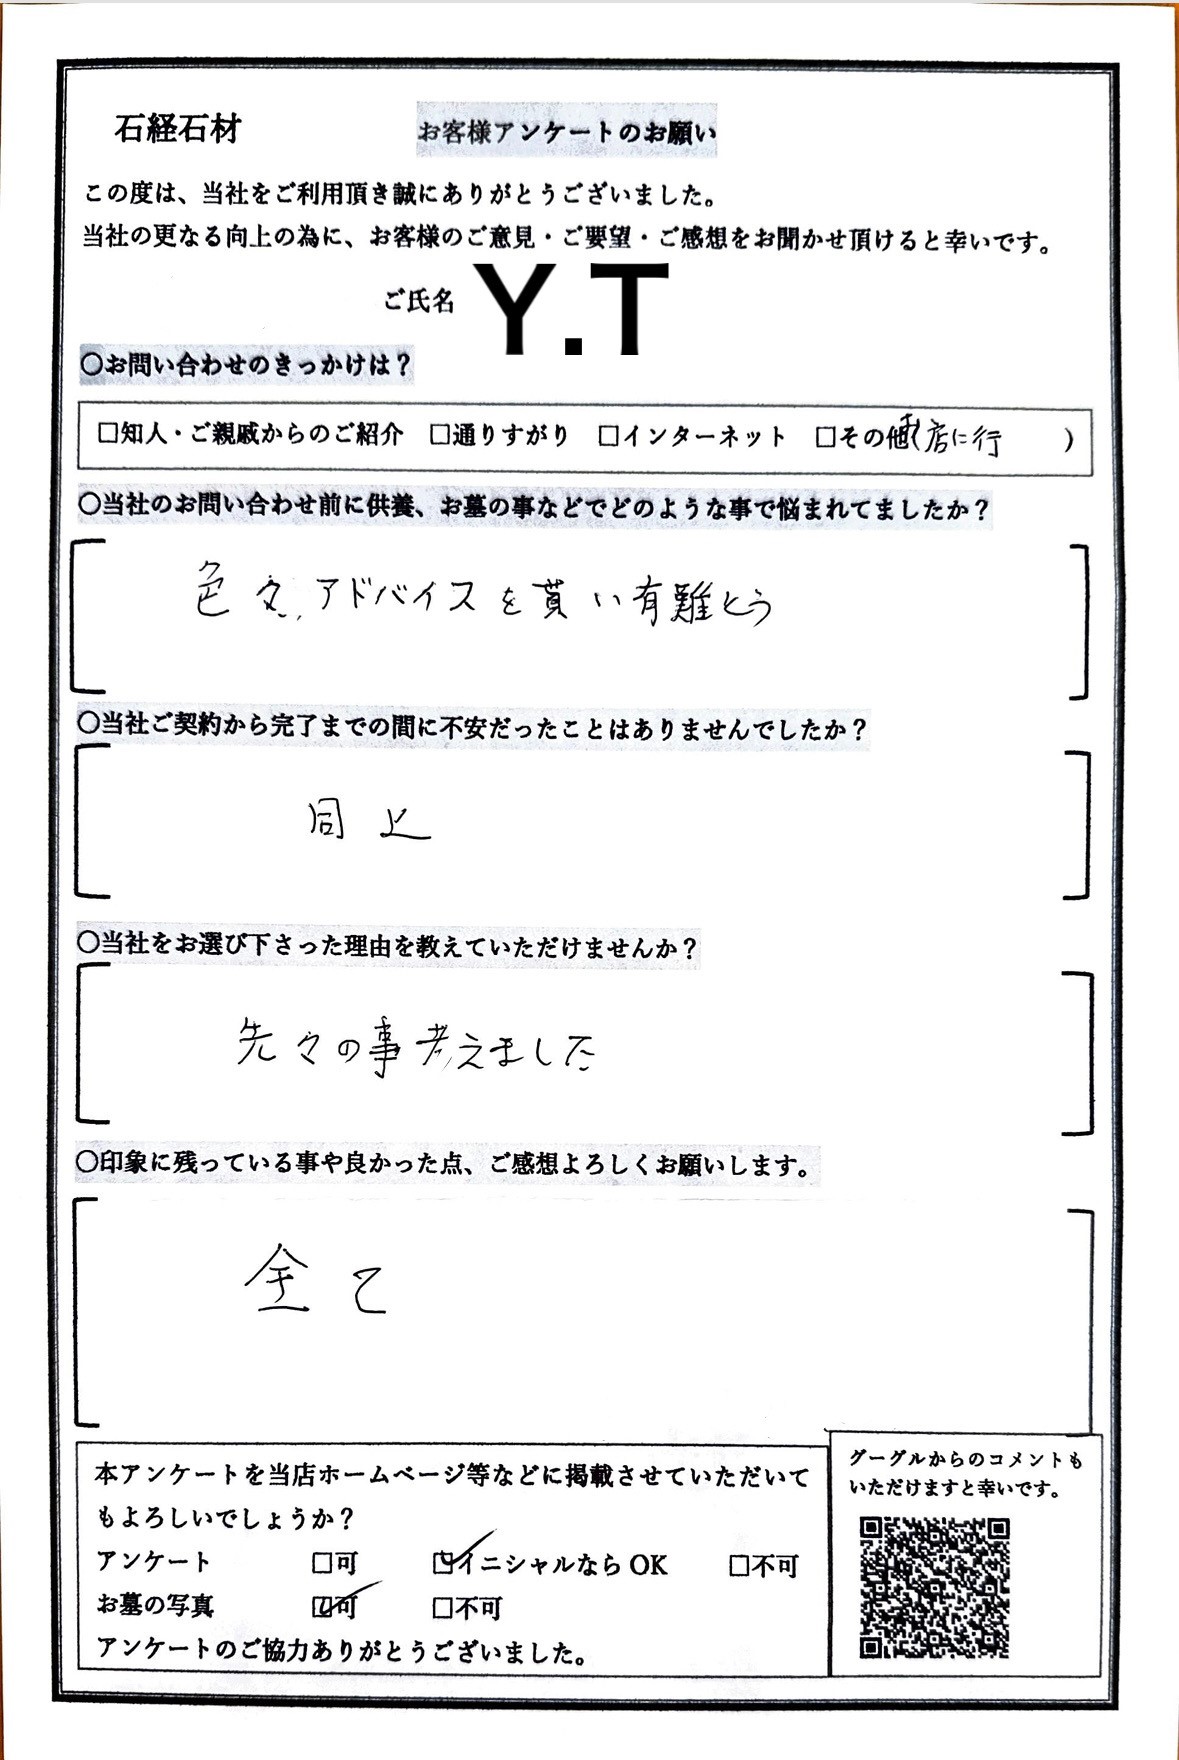 石経石材
お客様アンケートのお願い
この度は、当社をご利用頂き誠にありがとうございました。
当社の更なる向上の為に、お客様のご意見・ご要望・ご感想をお聞かせ頂けると幸いです。
ご氏名 Y.T
〇お問い合わせのきっかけは？
□知人・ご親戚からのご紹介 □通りすがり □インターネット □その他 お店に行 ）
〇当社のお問い合わせ前に供養、お墓の事などでどのような事で悩まれてましたか？
色々、アドバイスを貰い有難とう
〇当社ご契約から完了までの間に不安だったことはありませんでしたか？
同上
〇当社をお選び下さった理由を教えていただけませんか？
先々の事考えました
〇印象に残っている事や良かった点、ご感想よろしくお願いします。
全て
本アンケートを当店ホームページ等などに掲載させていただいて
もよろしいでしょうか？
アンケート □可 ☑イニシャルなら OK □不可
お墓の写真 ☑可 □不可
アンケートのご協力ありがとうございました。
グーグルからのコメントも
いただけますと幸いです。